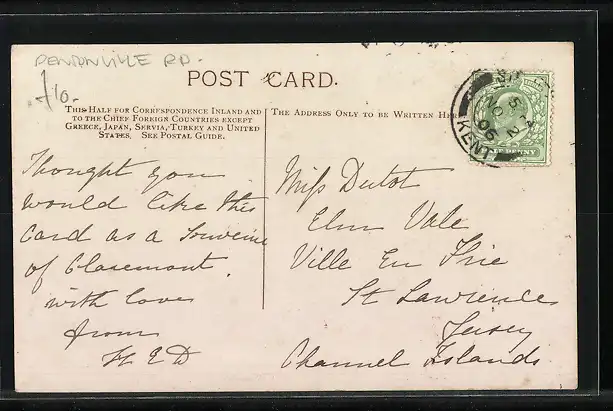 PENTONVILLE RD.
£10.
POST CARD.
THIS HALF FOR CORRESPONDENCE INLAND AND
TO THE CHIEF FOREIGN COUNTRIES EXCEPT
GREECE, JAPAN, SERVIA, TURKEY AND UNITED
STATES. SEE POSTAL GUIDE.
Thought you
would like this
Card as a Souvenir
of Claremont.
with love
from
H E D
THE ADDRESS ONLY TO BE WRITTEN HER
Miss Dutot
Elm Vale
Ville En Frie
St Lawrence
Jersey
Channel Islands
NO 2
06
KENT
PENNY